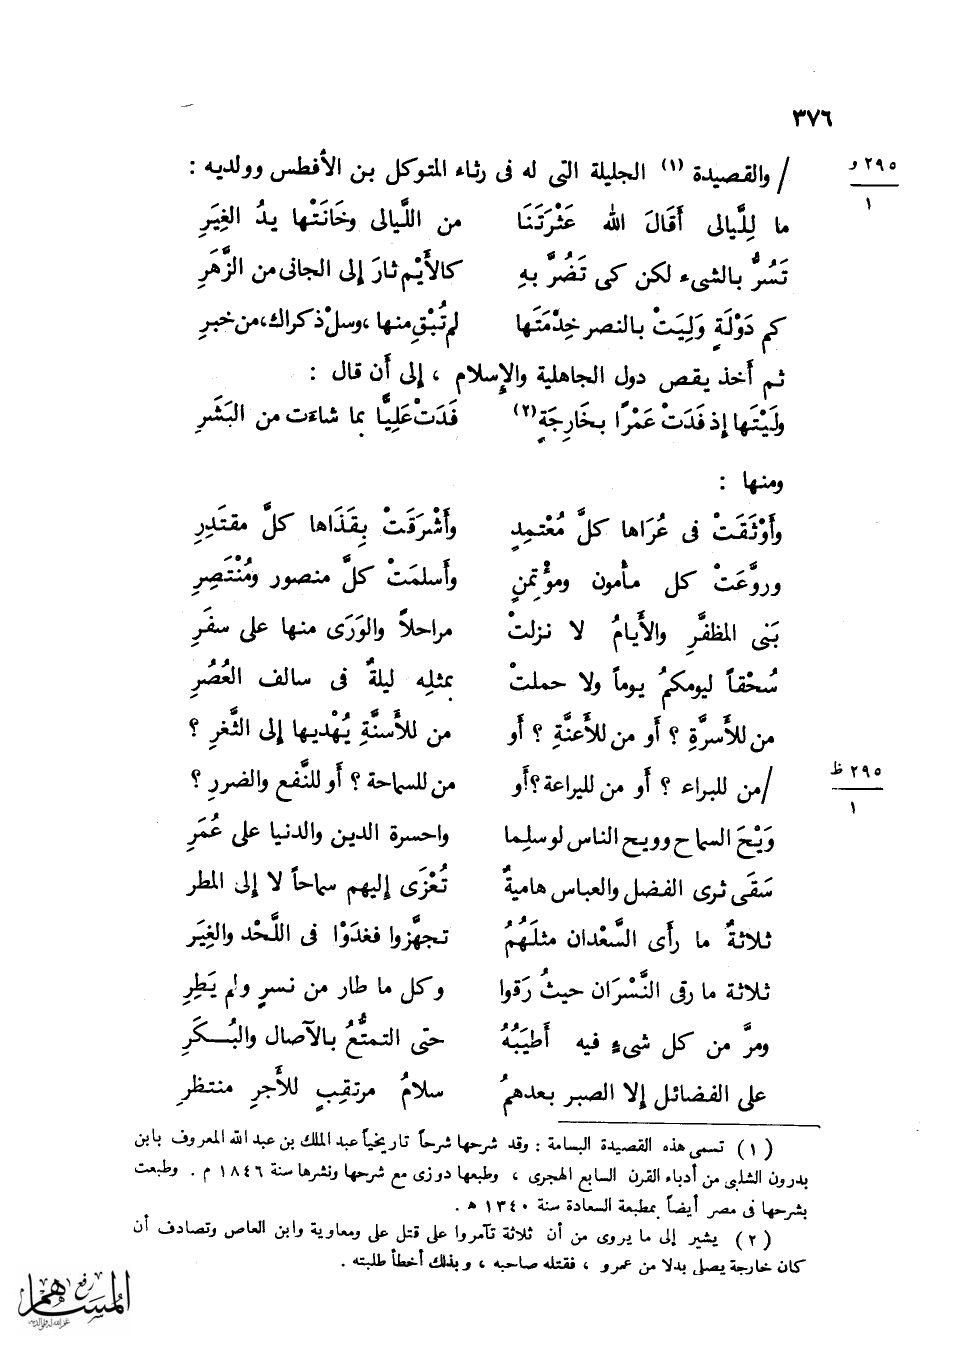 ٣٧٦
٢٩٥ و
١
/ والقصيدة (١) الجليلة التى له فى رثاء المتوكل بن الأفطس وولديه :
ما لِلَّيالى أَقَالَ الله عَثْرَتَنَا من اللَّيالى وخَانَتْها يدُ الغِيَرِ
تَسُرُّ بالشىء لكن كى تَضُرَّ بهِ كالأَيْم ثارَ إلى الجانى من الزَّهَرِ
كم دَوْلَةٍ وَلِيَتْ بالنصر خِدْمَتَها لم تُبْقِ منها ، وسلْ ذكراك ، من خبرِ
ثم أخذ يقص دول الجاهلية والإسلام ، إلى أن قال :
ولَيْتَها إذ فَدَتْ عَمْرًا بخَارِجَةٍ (٢) فَدَتْ عَلِيًّا بما شاءَت من البَشَرِ
ومنها :
وأَوْثَقَتْ فى عُرَاها كلَّ مُعْتمِدٍ وأَشْرَقَتْ بِقَذَاها كلَّ مقتَدِرِ
وروَّعَتْ كل مأمون ومؤْتِمنٍ وأَسلمَتْ كلَّ منصور ومُنْتَصِرِ
بَنى المظفَّرِ والأَيامُ لا نزلتْ مراحلاً والوَرَى منها على سفَرِ
سُحْقاً ليومكمُ يوماً ولا حملتْ بمثلِه ليلةٌ فى سالف العُصُرِ
من للأَسرَّةِ ؟ أو من للأَعنَّةِ ؟ أَو من للأَسنَّةِ يُهْديها إلى الثَّغرِ ؟
٢٩٥ ظ
١
/ من للبراء ؟ أو من لليراعة ؟ أَو من للسماحة ؟ أَو للنَّفع والضررِ ؟
وَيْحَ السماح وويح الناس لو سلِما واحسرة الدين والدنيا على عُمَرِ
سَقَى ثرى الفضل والعباس هاميةٌ تُعْزَى إليهم سماحاً لا إلى المطر
ثلاثةٌ ما رأَى السَّعْدان مثلَهُمُ تجهَّزوا فغدَوْا فى اللَّحْد والغِيَر
ثلاثة ما رقى النَّسْرَان حيثُ رَقوا وكل ما طار من نسرٍ ولم يَطِرِ
ومرَّ من كل شىءٍ فيه أَطيَبُهُ حتى التمتُّعُ بالآصال والبُكَرِ
على الفضائل إلا الصبر بعدهمُ سلامُ مرتقِبٍ للأَجرِ منتظرِ
(١) تسمى هذه القصيدة البسامة : وقد شرحها شرحاً تاريخياً عبد الملك بن عبد الله المعروف بابن
بدرون الشلبى من أدباء القرن السابع الهجرى ، وطبعها دوزى مع شرحها ونشرها سنة ١٨٤٦ م . وطبعت
بشرحها فى مصر أيضاً بمطبعة السعادة سنة ١٣٤٠ ه .
(٢) يشير إلى ما يروى من أن ثلاثة تآمروا على قتل على ومعاوية وابن العاص وتصادف أن
كان خارجة يصلى بدلا من عمرو ، فقتله صاحبه ، وبذلك أخطأ طلبته .
رفع
المساهم